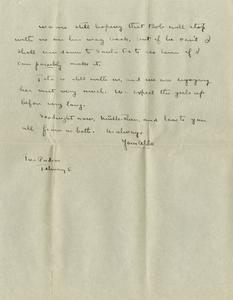 We are still hoping that Bob will stop
with us on his way back, but if he can't I
shall come down to Santa Fe to see him if I
can possibly make it.
is still with us, and we are enjoying
her visit very much. We expect the girls up
before very long.
Goodnight now, and love to you
all from us both. As always
Your
February 6